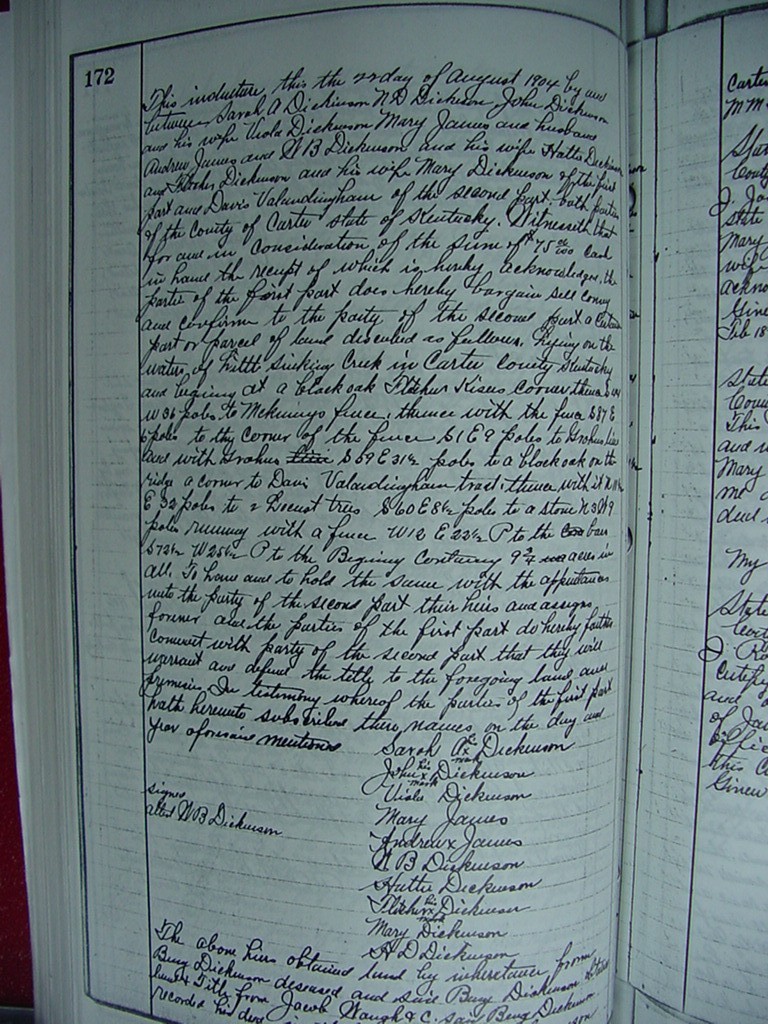 172
This indenture, this the 22 day of August 1904 by and
between Sarah A Dickinson N D Dickinson John Dickinson
and his wife Viola Dickinson Mary James and husband
Andrew James and W B Dickinson and his wife Hattie Dickinson
and Fletcher Dickinson and his wife Mary Dickinson of the first
part and Davis Valandingham of the second part, both parties
of the County of Carter state of Kentucky. Witnesseth that
for and in consideration of the sum of $75 00/100 cash
in hand the receipt of which is hereby acknowledged, the
parties of the first part does hereby bargain sell convey
and confirm to the party of the second part a certain
part or parcel of land described as follows. Lying on the
waters of Little Sinking Creek in Carter County Kentucky
and beginning at a black oak Fletcher Kisers corner, thence
W 36 poles to fence, thence with the fence S 87 E
poles to the corner of the fence S 1 E 9 poles to Grahns line
and with Grahns line S 59 E 31½ poles to a black oak on the
ridge a corner to Davis Valandingham tract thence with it N
E 32 poles to 2 Locust trees S 60 E 8½ poles to a stone N 3
poles running with a fence W 12 E 22½ P to the bars
S 73½ W 25½ P to the Beginning Containing 9 acres in
all. To have and to hold the same with the appurtances
unto the party of the second part their heirs and assigns
forever and the parties of the first part do hereby further
covenant with party of the second part that they will
warrant and defend the title to the foregoing land and
premises. In testimony whereof the parties of the first part
hath hereunto subscribed there names on the day and
year aforesaid mentioned
Sarah A his x mark Dickinson
John his x mark Dickinson
Viola Dickinson
Mary James
signed
attest W B Dickinson
Andrew x James
W B Dickinson
Hattie Dickinson
Fletcher his x mark Dickinson
Mary Dickinson
N D Dickinson
The above heirs obtained land by inheretance from
Benj Dickinson deseased and said Benj Dickinson
land & Title from Jacob Waugh & C. said Benj Dickinson
recorded his deed in
Carter
State
County
State
Mary
wife
ackno
Given
Feb 18
State
Coun
This
and
Mary
me
deed
My
State
Certify
and
of
office
this
Given